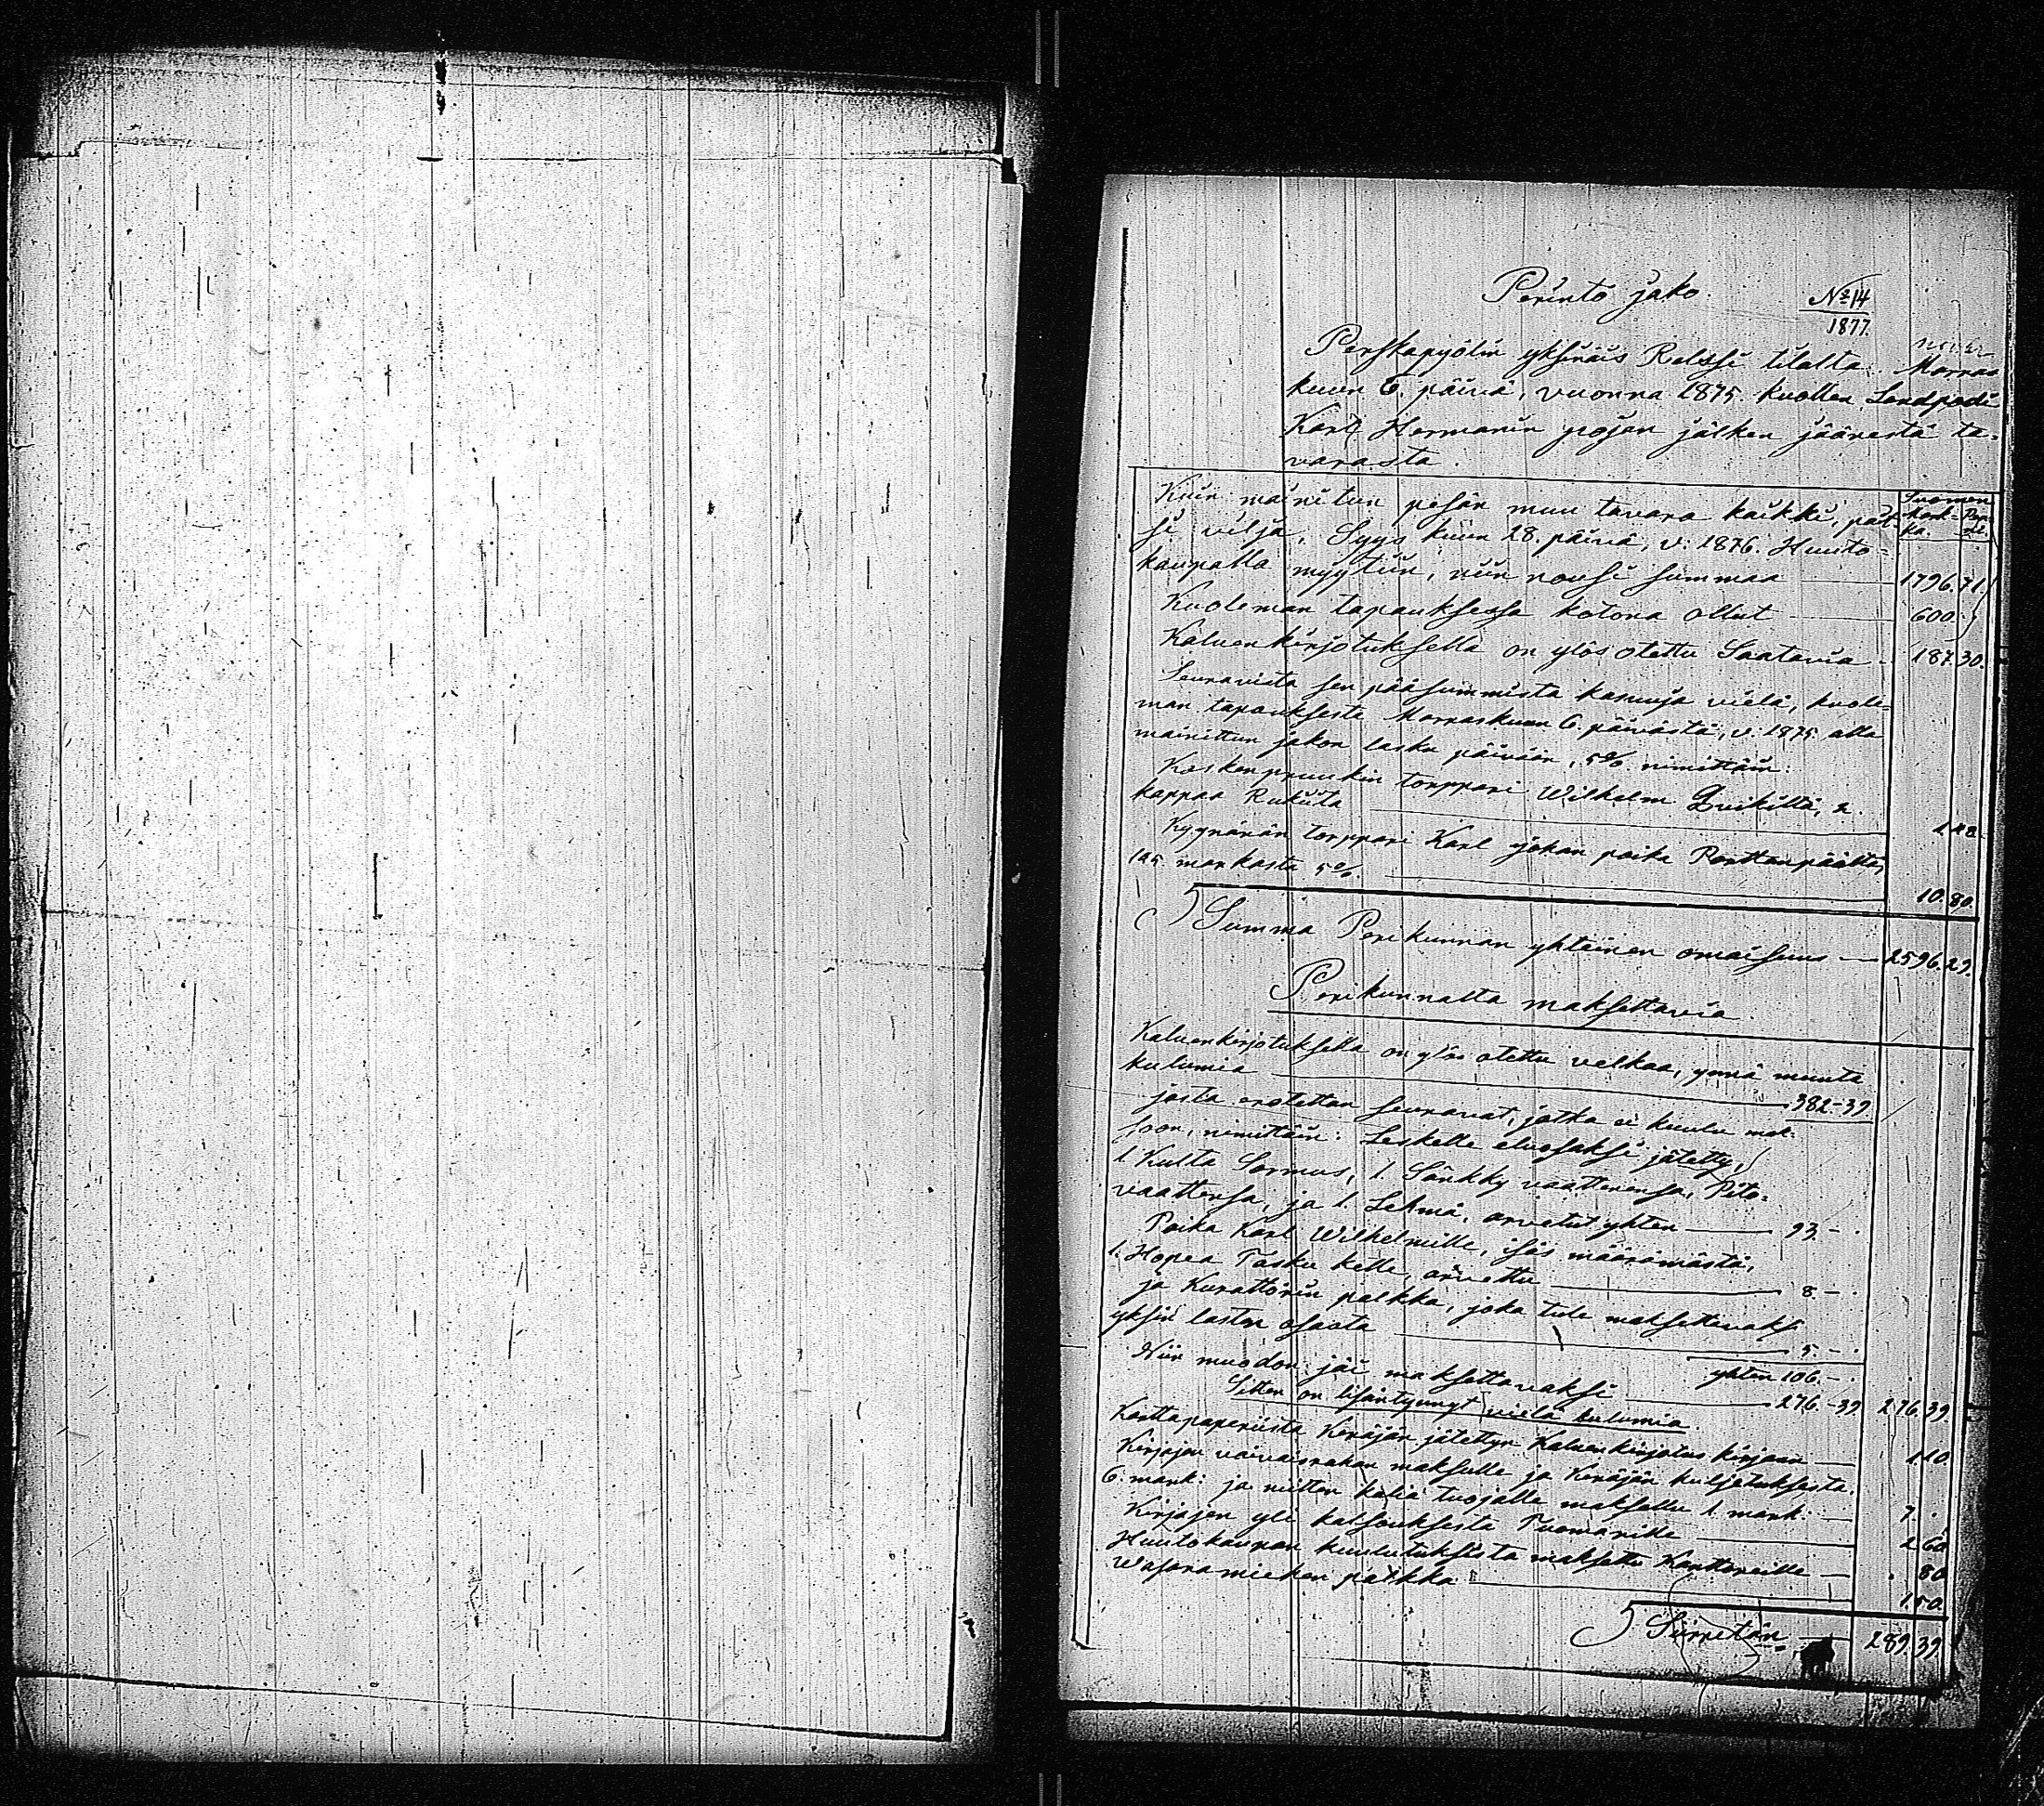 Perintö jako.
No 14
1877.
yksinäis tilalta. Marras
kuun 6. päivä, vuonna 1875. kuollen
Karl Hermanin pojan jälken jäänestä ta=
varasta.
Suomen
Mark-
ka.
Kuin mainitun pesän muu tavara kaikki, pait
si vilja, Syys kuun 28. päivä, v: 1876. Huuto=
kaupalla myytiin, niin nousi summaa 1796.71.
Kuoleman tapauksessa kotona ollut 600.
Kaluenkirjotuksella on ylös otettu Saatavia 187.30.
Seuravista sen pääsummista kasvuja vielä, kuole=
man tapauksesta Marraskuun 6. päivästä, v: 1875 alla
mainittun jakon lasku päivään, 5% nimittäin:
torppari Wilhelm 2.
kappaa Rukiita
Kyynärän torppari Karl Johan poika
markasta 5% 10.80.
Summa Perikunnan yhteinen omaisuus 2596.29.
Perikunnalta maksettavia.
Kaluenkirjotuksella on ylös otettu velkaa, ynnä muuta
kulumia 382-39
josta erotettan seuravat, jotka ei kuulu mak=
soon, nimittäin: Leskelle etuosaksi jätetty,
1 Kulta Sormus, 1. Sänkky vaattenensa, Pito=
vaattensa, ja 1. Lehmä, arvetut yhten 93 -
Poika Karl Wilhelmille, isäs määrämästä,
1. Hopea Tasku kello, arvettu 8 -
ja Kurattorin palkka, joka tule maksettavaksi
yksin lasten osasta 5. -
yhten 106. -
Niin muodon jäi maksettavaksi 276.-39 276.39
Sitten on lisäntynnyt vielä kulumia.
Karttapaperista Keräjän jätettyn Kaluenkirjotus kirjaan 1.10.
Kirjajen vaivaisrahan maksulle ja Keräjän kuljetuksesta.
6. mark: ja niitten tuojalle maksettu 1. mark: 7.
Kirjajen yli katsouksesta Tuomarille 2.60
Huutokaupan kuulutuksista maksettu Kanttoreille . 80
Wasaramiehen palkka 1.50.
Siirretän 289.39.